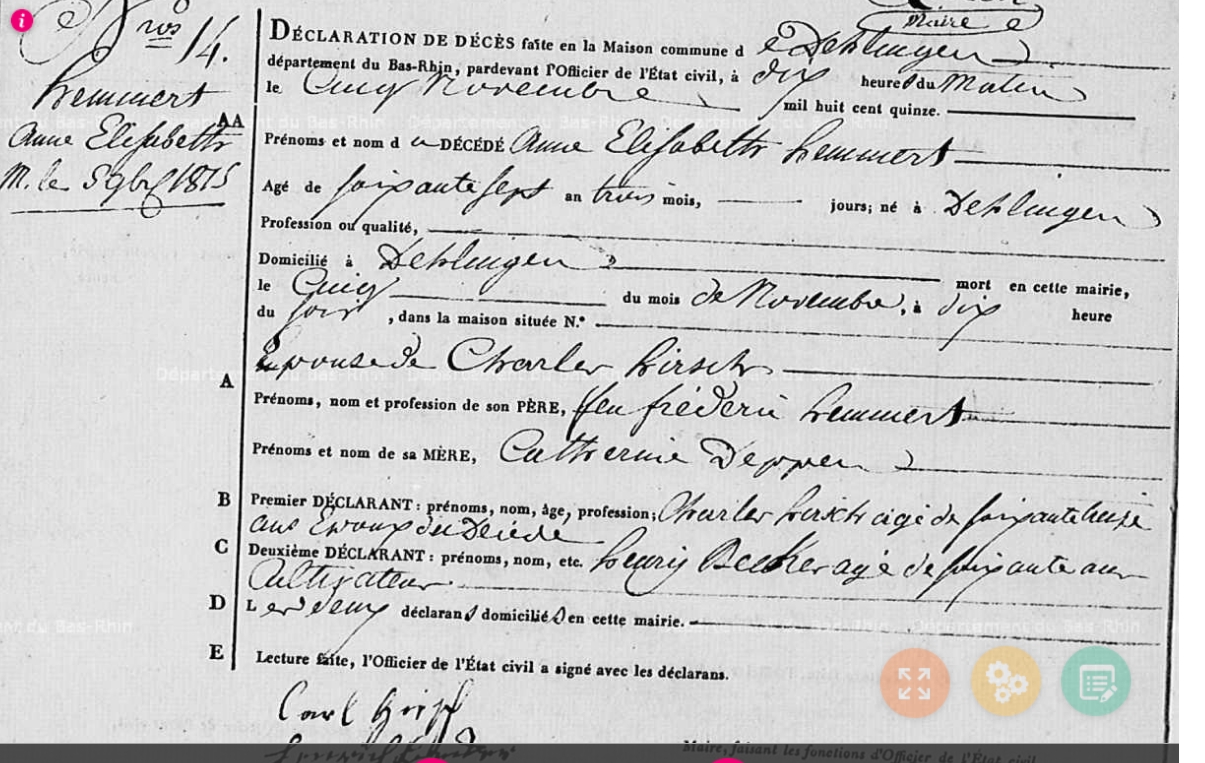 Maire
Nros 14.
hemmert
Anne Elisabeth
M. le 5 9bre 1815
DÉCLARATION DE DÉCÈS faite en la Maison commune d e Dehlingen
département du Bas-Rhin, pardevant l'Officier de l'État civil, à dix heures du Matin
le Cinq Novembre mil huit cent quinze.
AA
Prénoms et nom d u DÉCÉDÉ Anne Elisabeth hemmert
Agé de soixante sept an trois mois, jours; né à Dehlingen
Profession ou qualité,
Domicilié à Dehlingen mort en cette mairie,
le Cinq du mois de Novembre, à dix heure
du soir, dans la maison située N.°
Epouse de Charles hirsch
A
Prénoms, nom et profession de son PÈRE, feu frédéric hemmert
Prénoms et nom de sa MÈRE, Catherine Deppen
B Premier DÉCLARANT : prénoms, nom, âge, profession; Charles hirsch agé de soixante
ans Epoux du Décédé
C Deuxième DÉCLARANT : prénoms, nom, etc. henry Becker agé de soixante ans
Cultivateur
D Les deux déclarans domiciliés en cette mairie.
E Lecture faite, l'Officier de l'État civil a signé avec les déclarans.
Carl hirsch
Maire, faisant les fonctions d'Officier de l'État civil